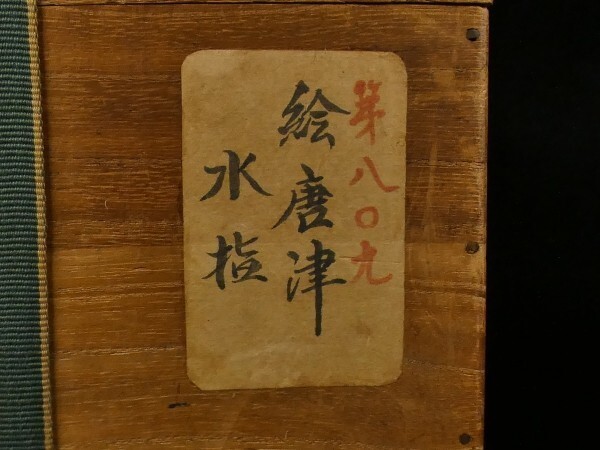 第八〇九
絵唐津
水指